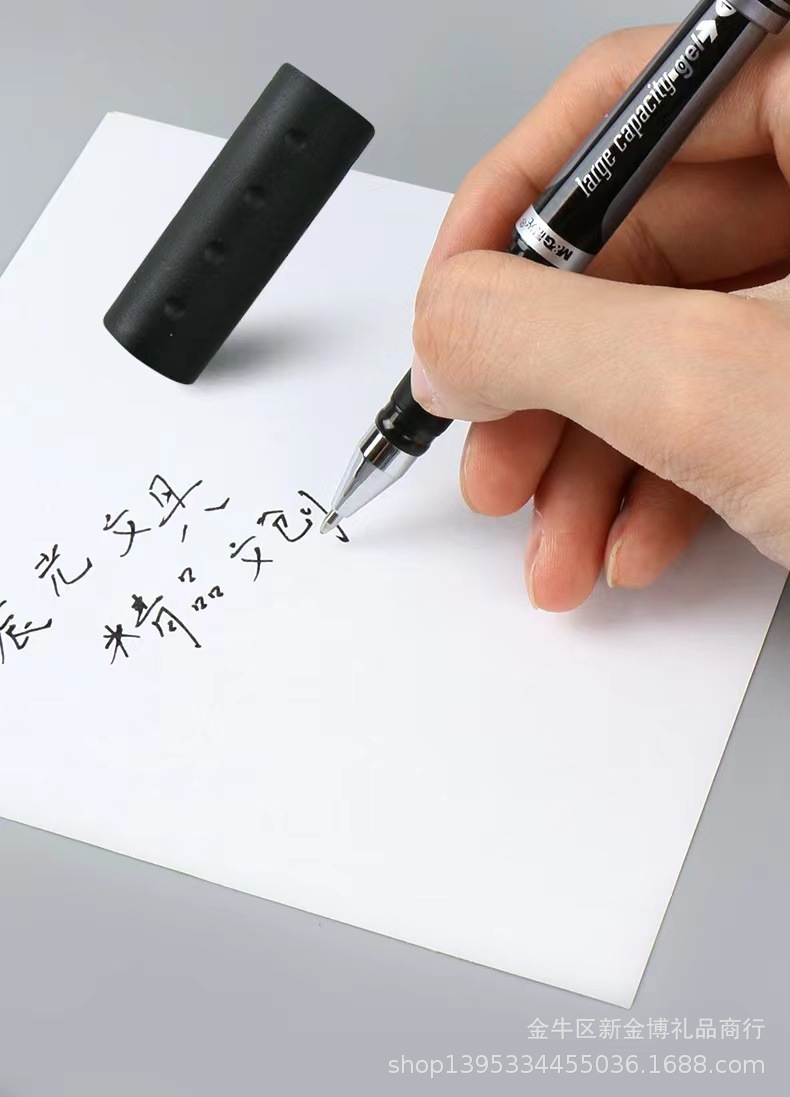 large capacity gel
M&G晨光®
晨光文具
精品文创
金牛区新金博礼品商行
shop1395334455036.1688.com